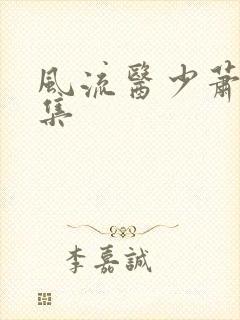 風流醫少蕭
集
李嘉誠